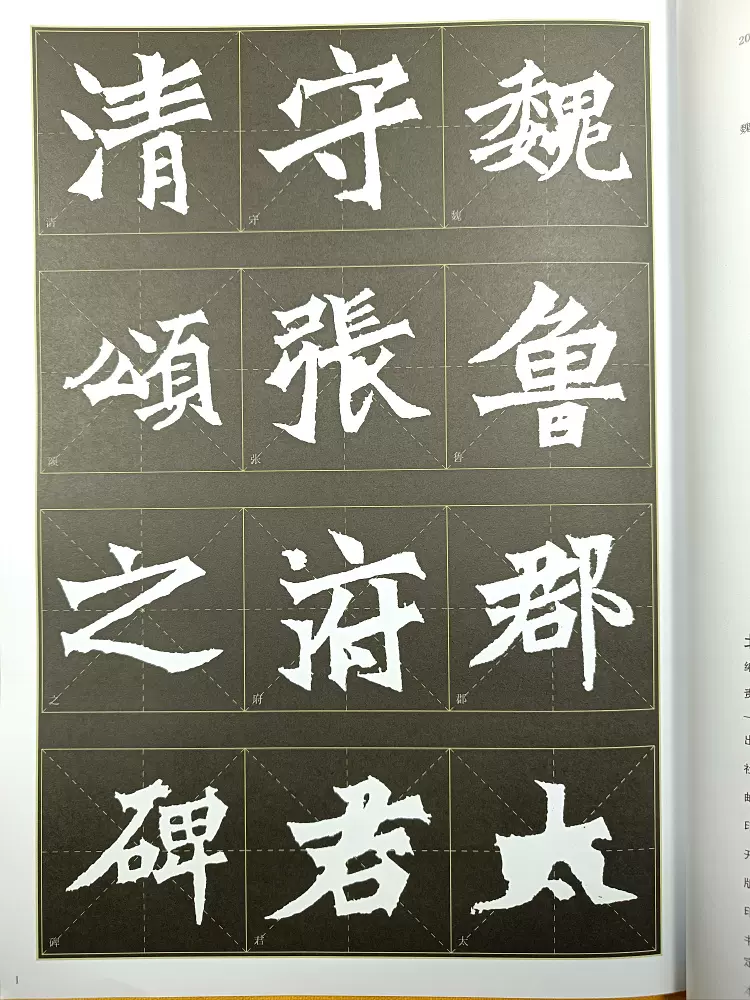 魏魯郡太
守張府君
清頌之碑
魏
鲁
郡
太
守
张
府
君
清
颂
之
碑
1
20
魏